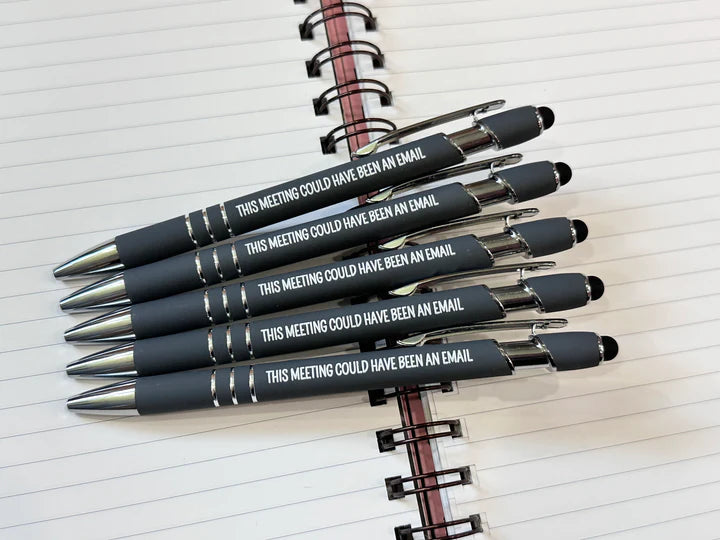 THIS MEETING COULD HAVE BEEN AN EMAIL
THIS MEETING COULD HAVE BEEN AN EMAIL
THIS MEETING COULD HAVE BEEN AN EMAIL
THIS MEETING COULD HAVE BEEN AN EMAIL
THIS MEETING COULD HAVE BEEN AN EMAIL